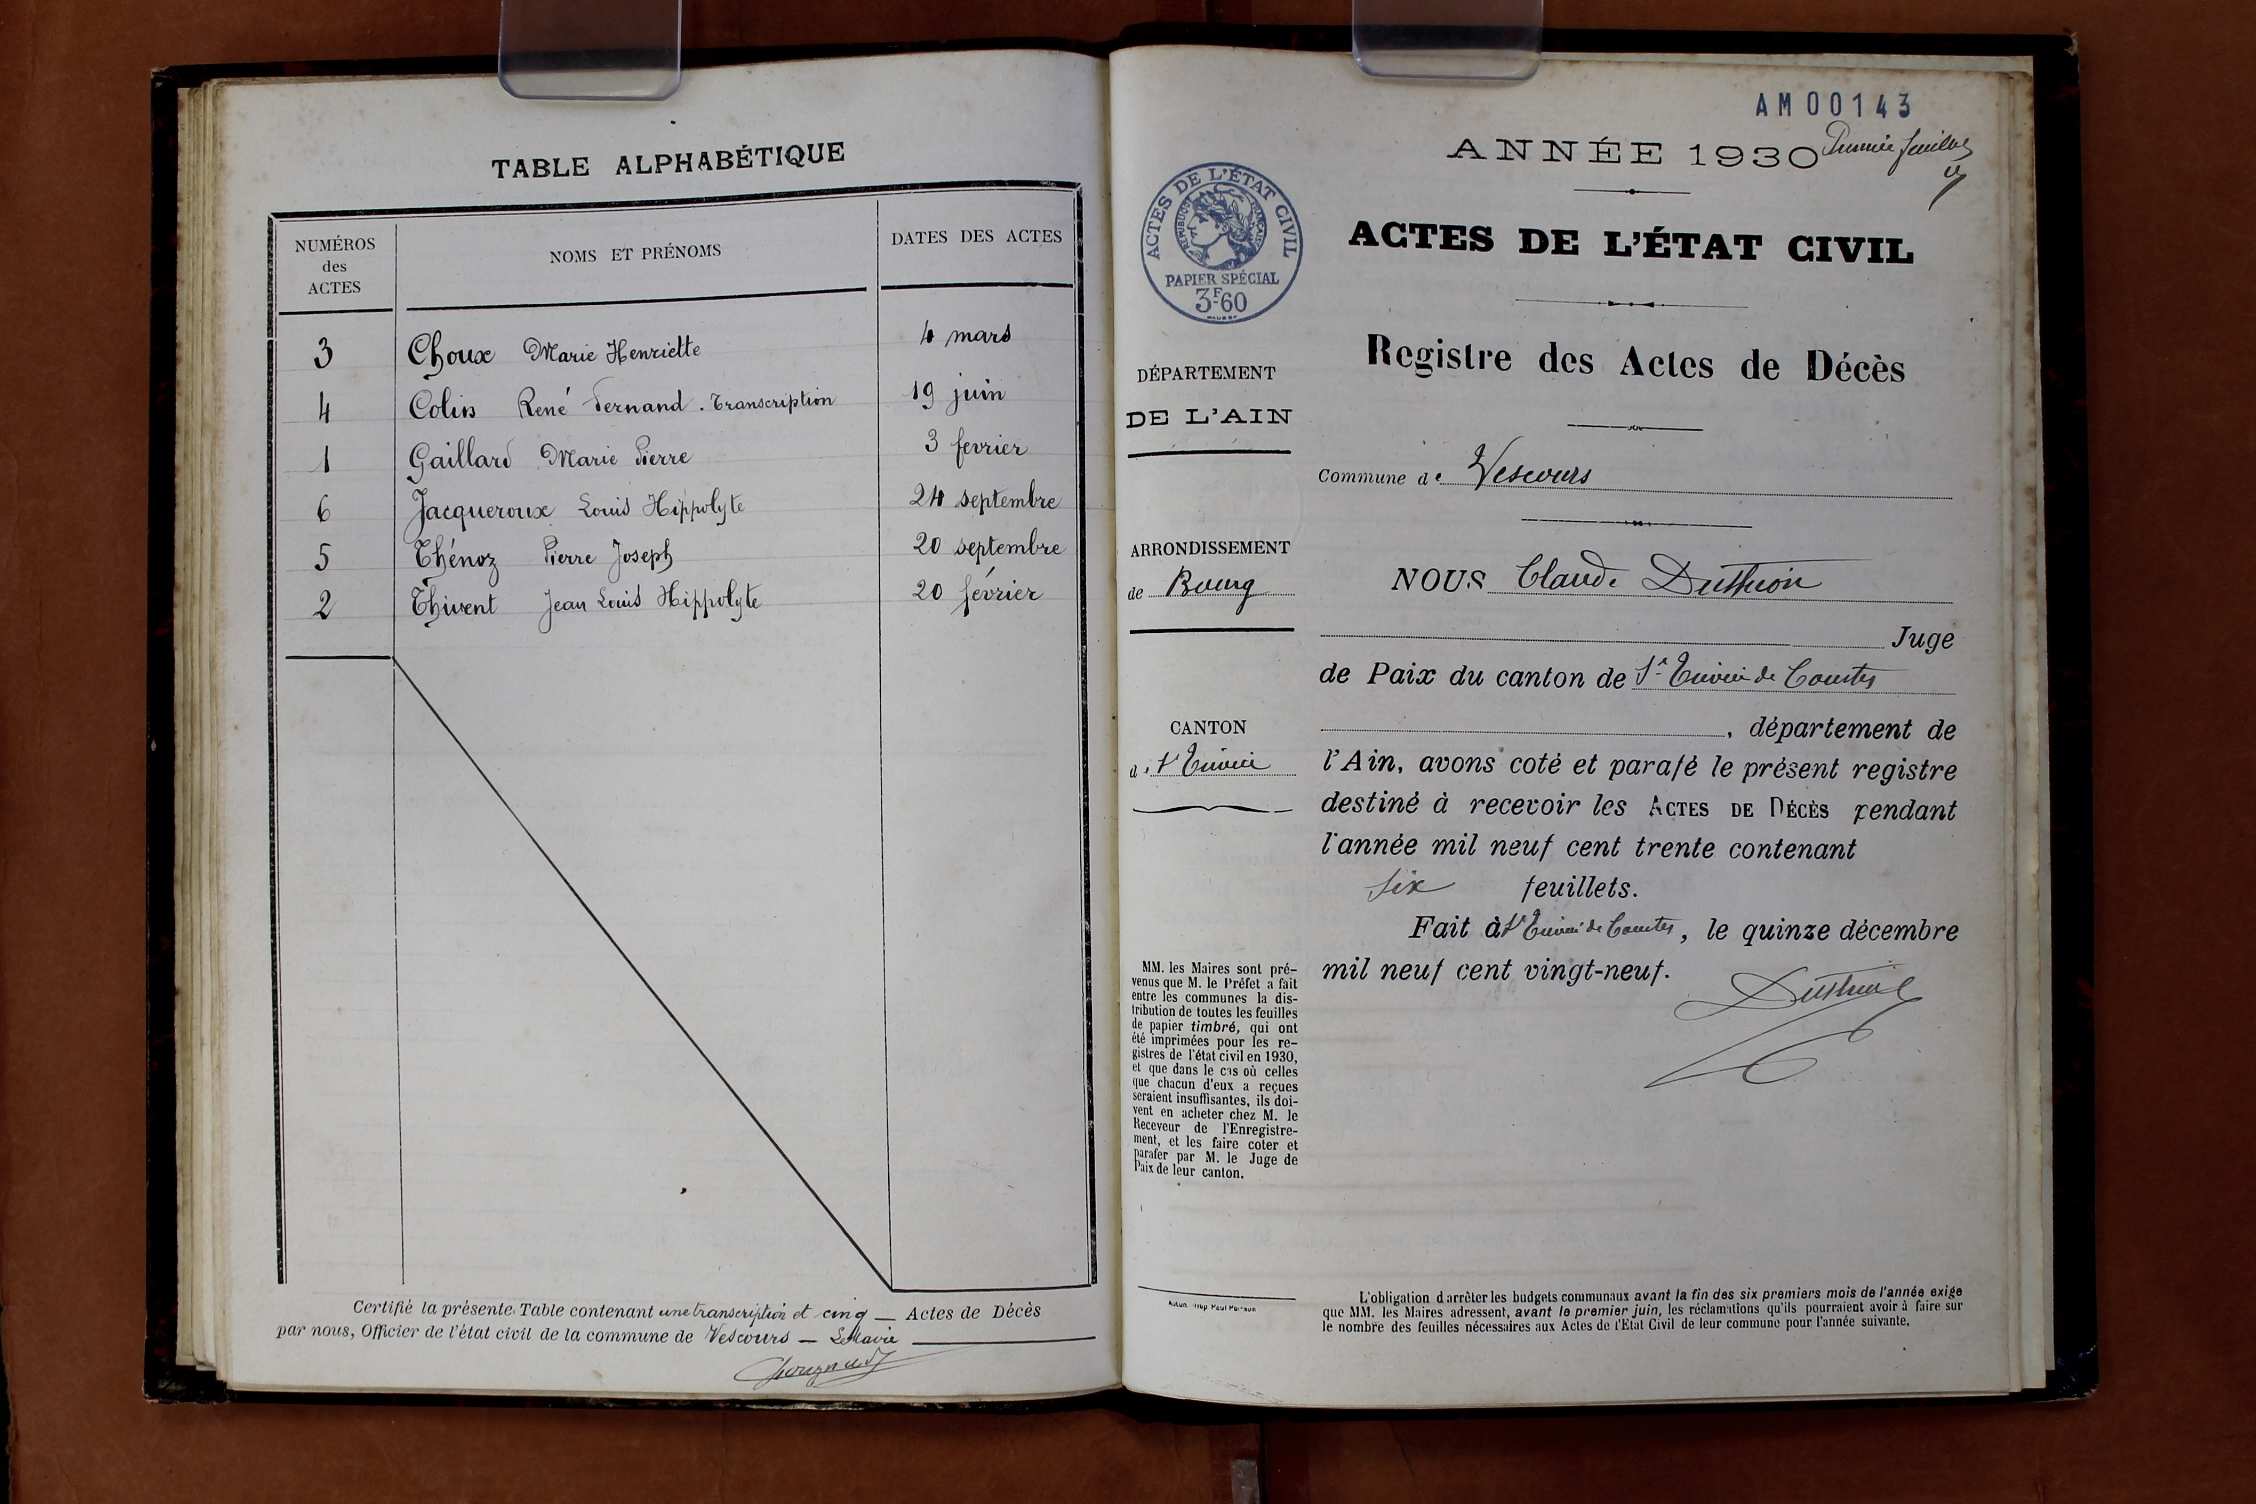 TABLE ALPHABÉTIQUE
NUMÉROS
des
ACTES
NOMS ET PRÉNOMS
DATES DES ACTES
3 Choux Marie Henriette 4 mars
4 Colin René Fernand . Transcription 19 juin
1 Gaillard Marie Pierre 3 fevrier
6 Jacqueroux Louis Hippolyte 24 septembre
5 Thénoz Pierre Joseph 20 septembre
2 Thivent Jean Louis Hippolyte 20 février
Certifié la présente Table contenant une transcription et cinq — Actes de Décès
par nous, Officier de l'état civil de la commune de Vescours — Le Maire
AM00143
ANNÉE 1930
ACTES DE L'ÉTAT CIVIL
RÉPUBLIQUE FRANÇAISE
PAPIER SPÉCIAL
3F60
ACTES DE L'ÉTAT CIVIL
Registre des Actes de Décès
DÉPARTEMENT
DE L'AIN
Commune de Vescours
ARRONDISSEMENT
de Bourg
CANTON
de St Trivier
NOUS Claude
Juge
de Paix du canton de St Trivier de Courtes
, département de
l'Ain, avons coté et parafé le présent registre
destiné à recevoir les ACTES DE DÉCÈS pendant
l'année mil neuf cent trente contenant
six feuillets.
Fait à St Trivier de Courtes, le quinze décembre
mil neuf cent vingt-neuf.
MM. les Maires sont pré-
venus que M. le Préfet a fait
entre les communes la dis-
tribution de toutes les feuilles
de papier timbré, qui ont
été imprimées pour les re-
gistres de l'état civil en 1930,
et que dans le cas où celles
que chacun d'eux a reçues
seraient insuffisantes, ils doi-
vent en acheter chez M. le
Receveur de l'Enregistre-
ment, et les faire coter et
parafer par M. le Juge de
Paix de leur canton.
L'obligation d'arrêter les budgets communaux avant la fin des six premiers mois de l'année exige
que MM. les Maires adressent, avant le premier juin, les réclamations qu'ils pourraient avoir à faire sur
le nombre des feuilles nécessaires aux Actes de l'État Civil de leur commune pour l'année suivante.